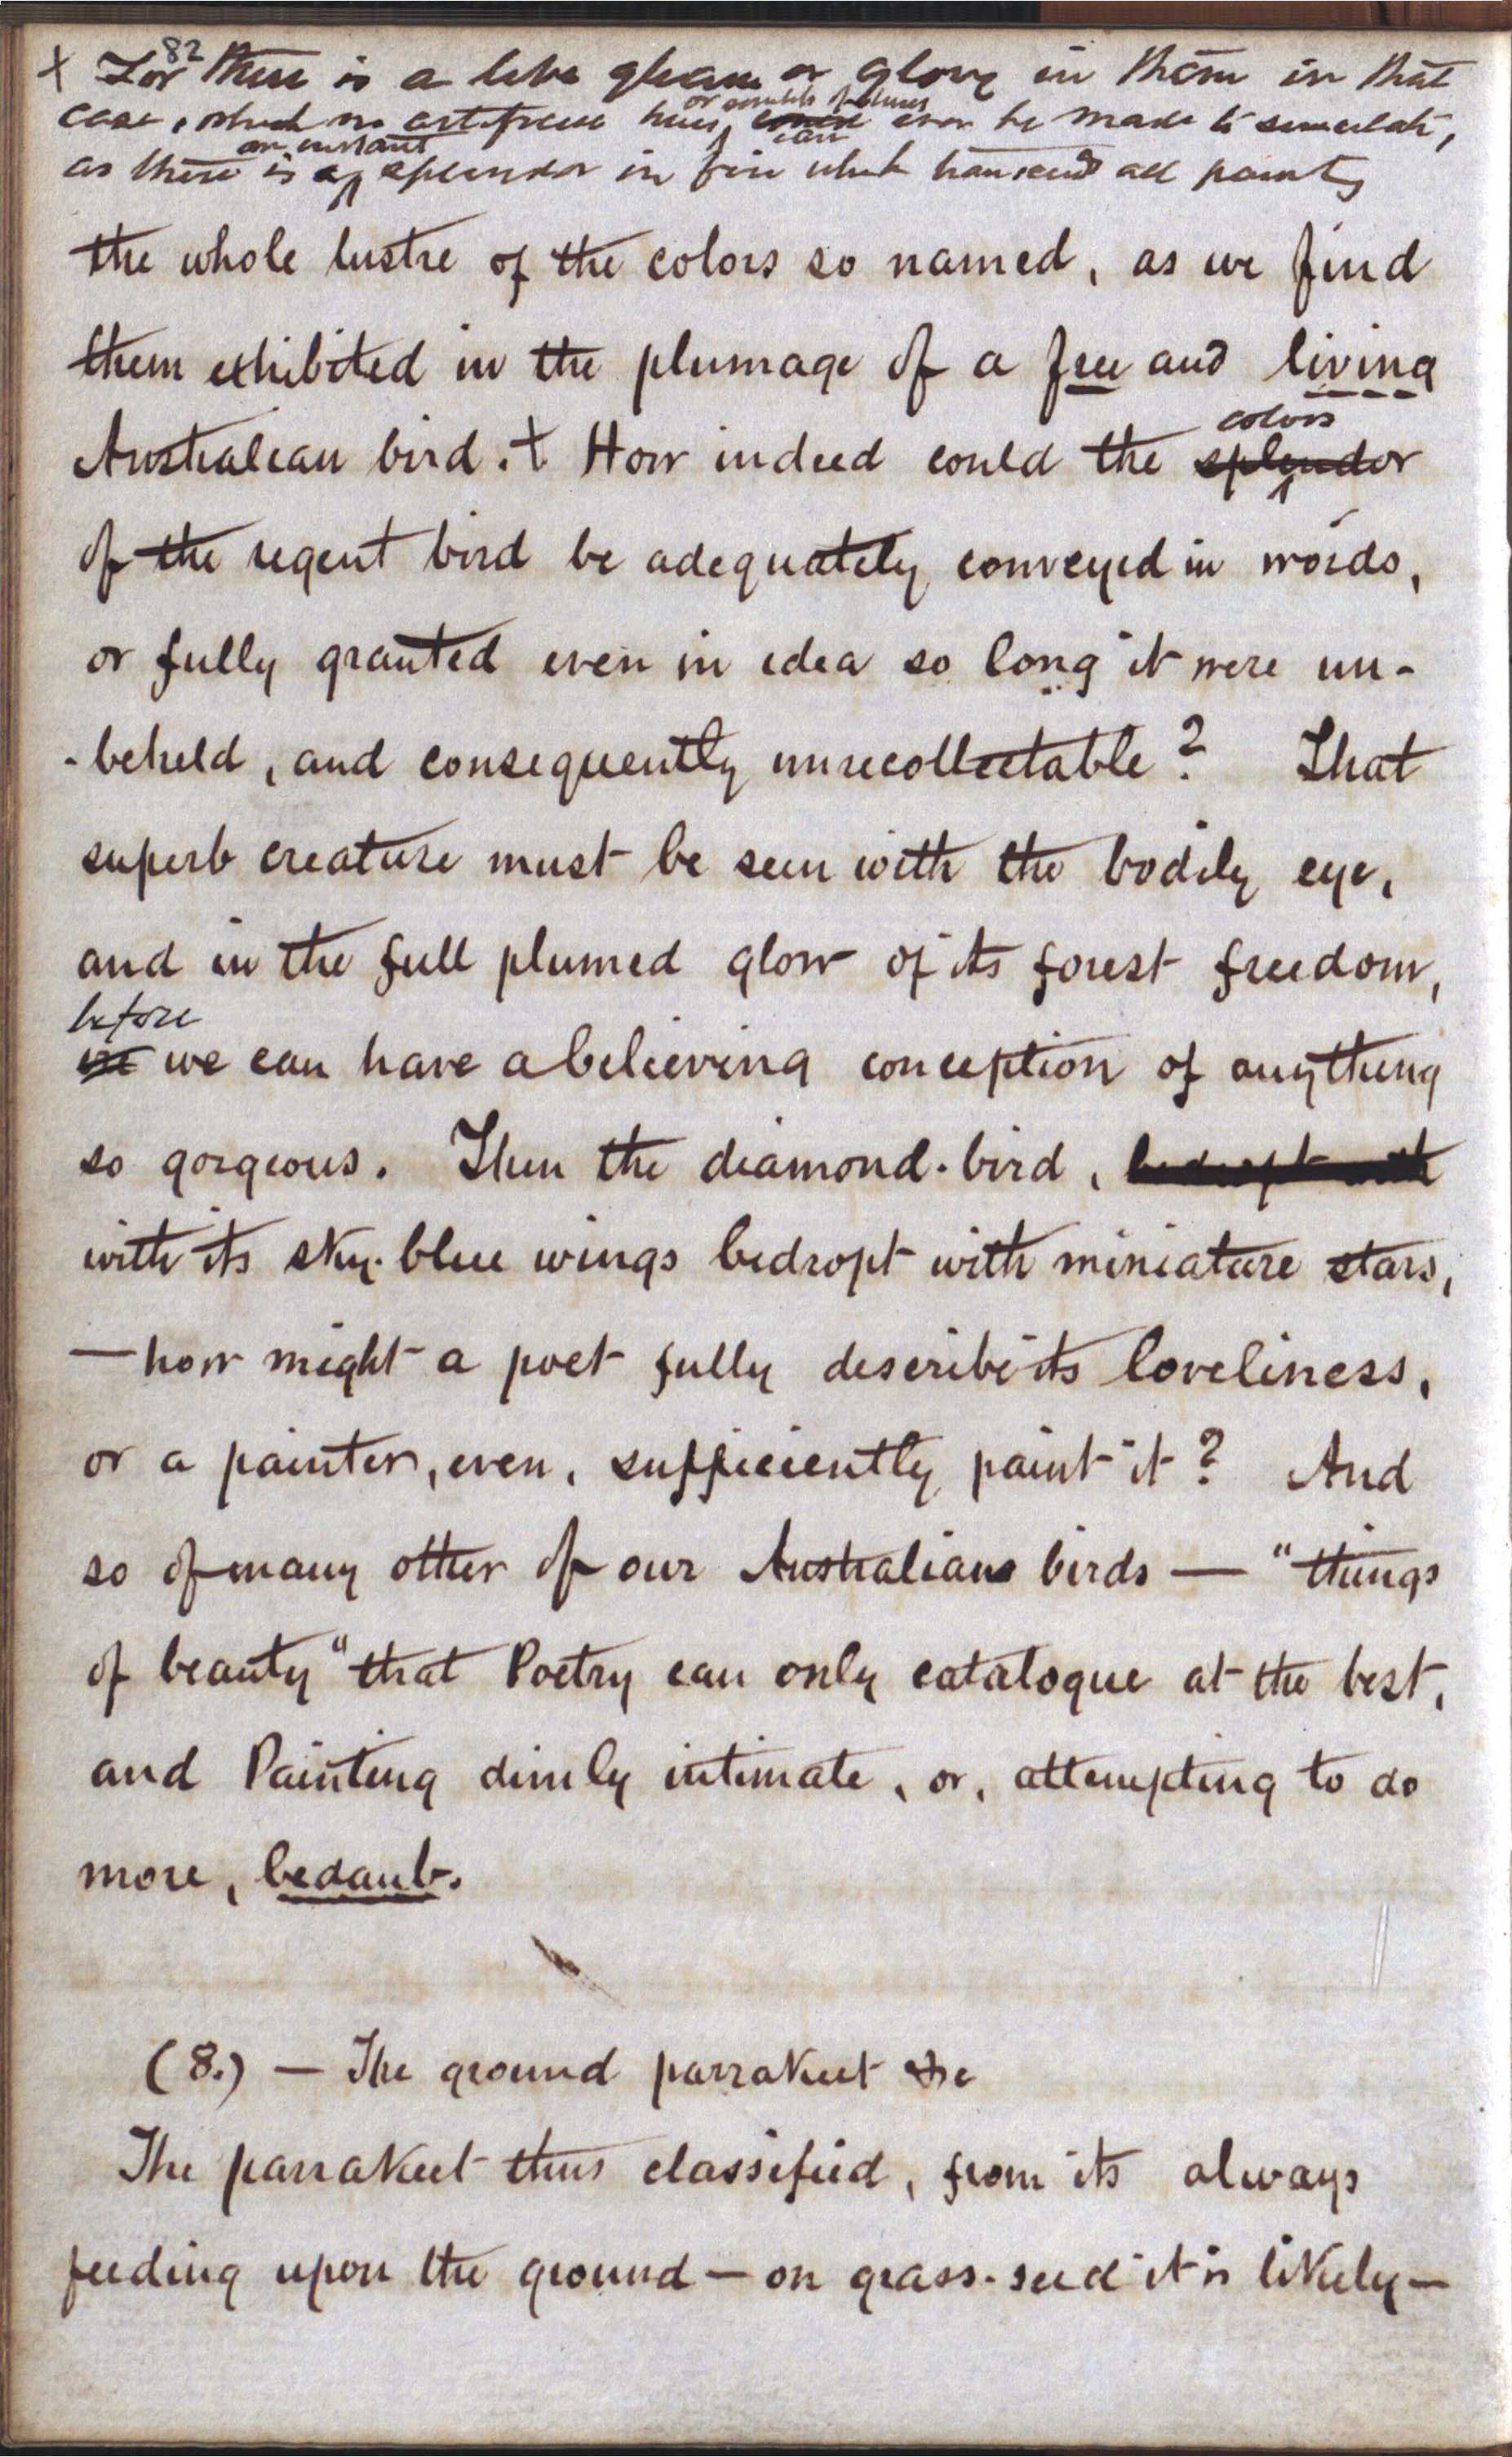 82
+ For there is a live gleam or glory in them in that
case, which no artificial hues,
or
can could ever be made to simulate,
an instant
as there is a splendor in fire which transcends all paint,
the whole lustre of the colors so named, as we find
them exhibited in the plumage of a free and living
Australian bird. + How indeed could the splendor
colors
of the regent bird be adequately conveyed in words,
or fully granted even in idea so long it were un-
-beheld, and consequently unrecollectable? That
superb creature must be seen with the bodily eye,
and in the full plumed glow of its forest freedom,
before
we can have a believing conception of anything
so gorgeous. Then the diamond-bird, bedropt with
with its sky-blue wings bedropt with miniature stars,
—how might a poet fully describe its loveliness,
or a painter, even, sufficiently paint it? And
so of many other of our Australians birds — "things
of beauty" that Poetry can only catalogue at the best,
and Painting dimly intimate, or, attempting to do
more, bedaub.
(8.) — The ground parrakeet &c
The parrakeet thus classified, from its always
feeding upon the ground — on grass-seed it is likely —